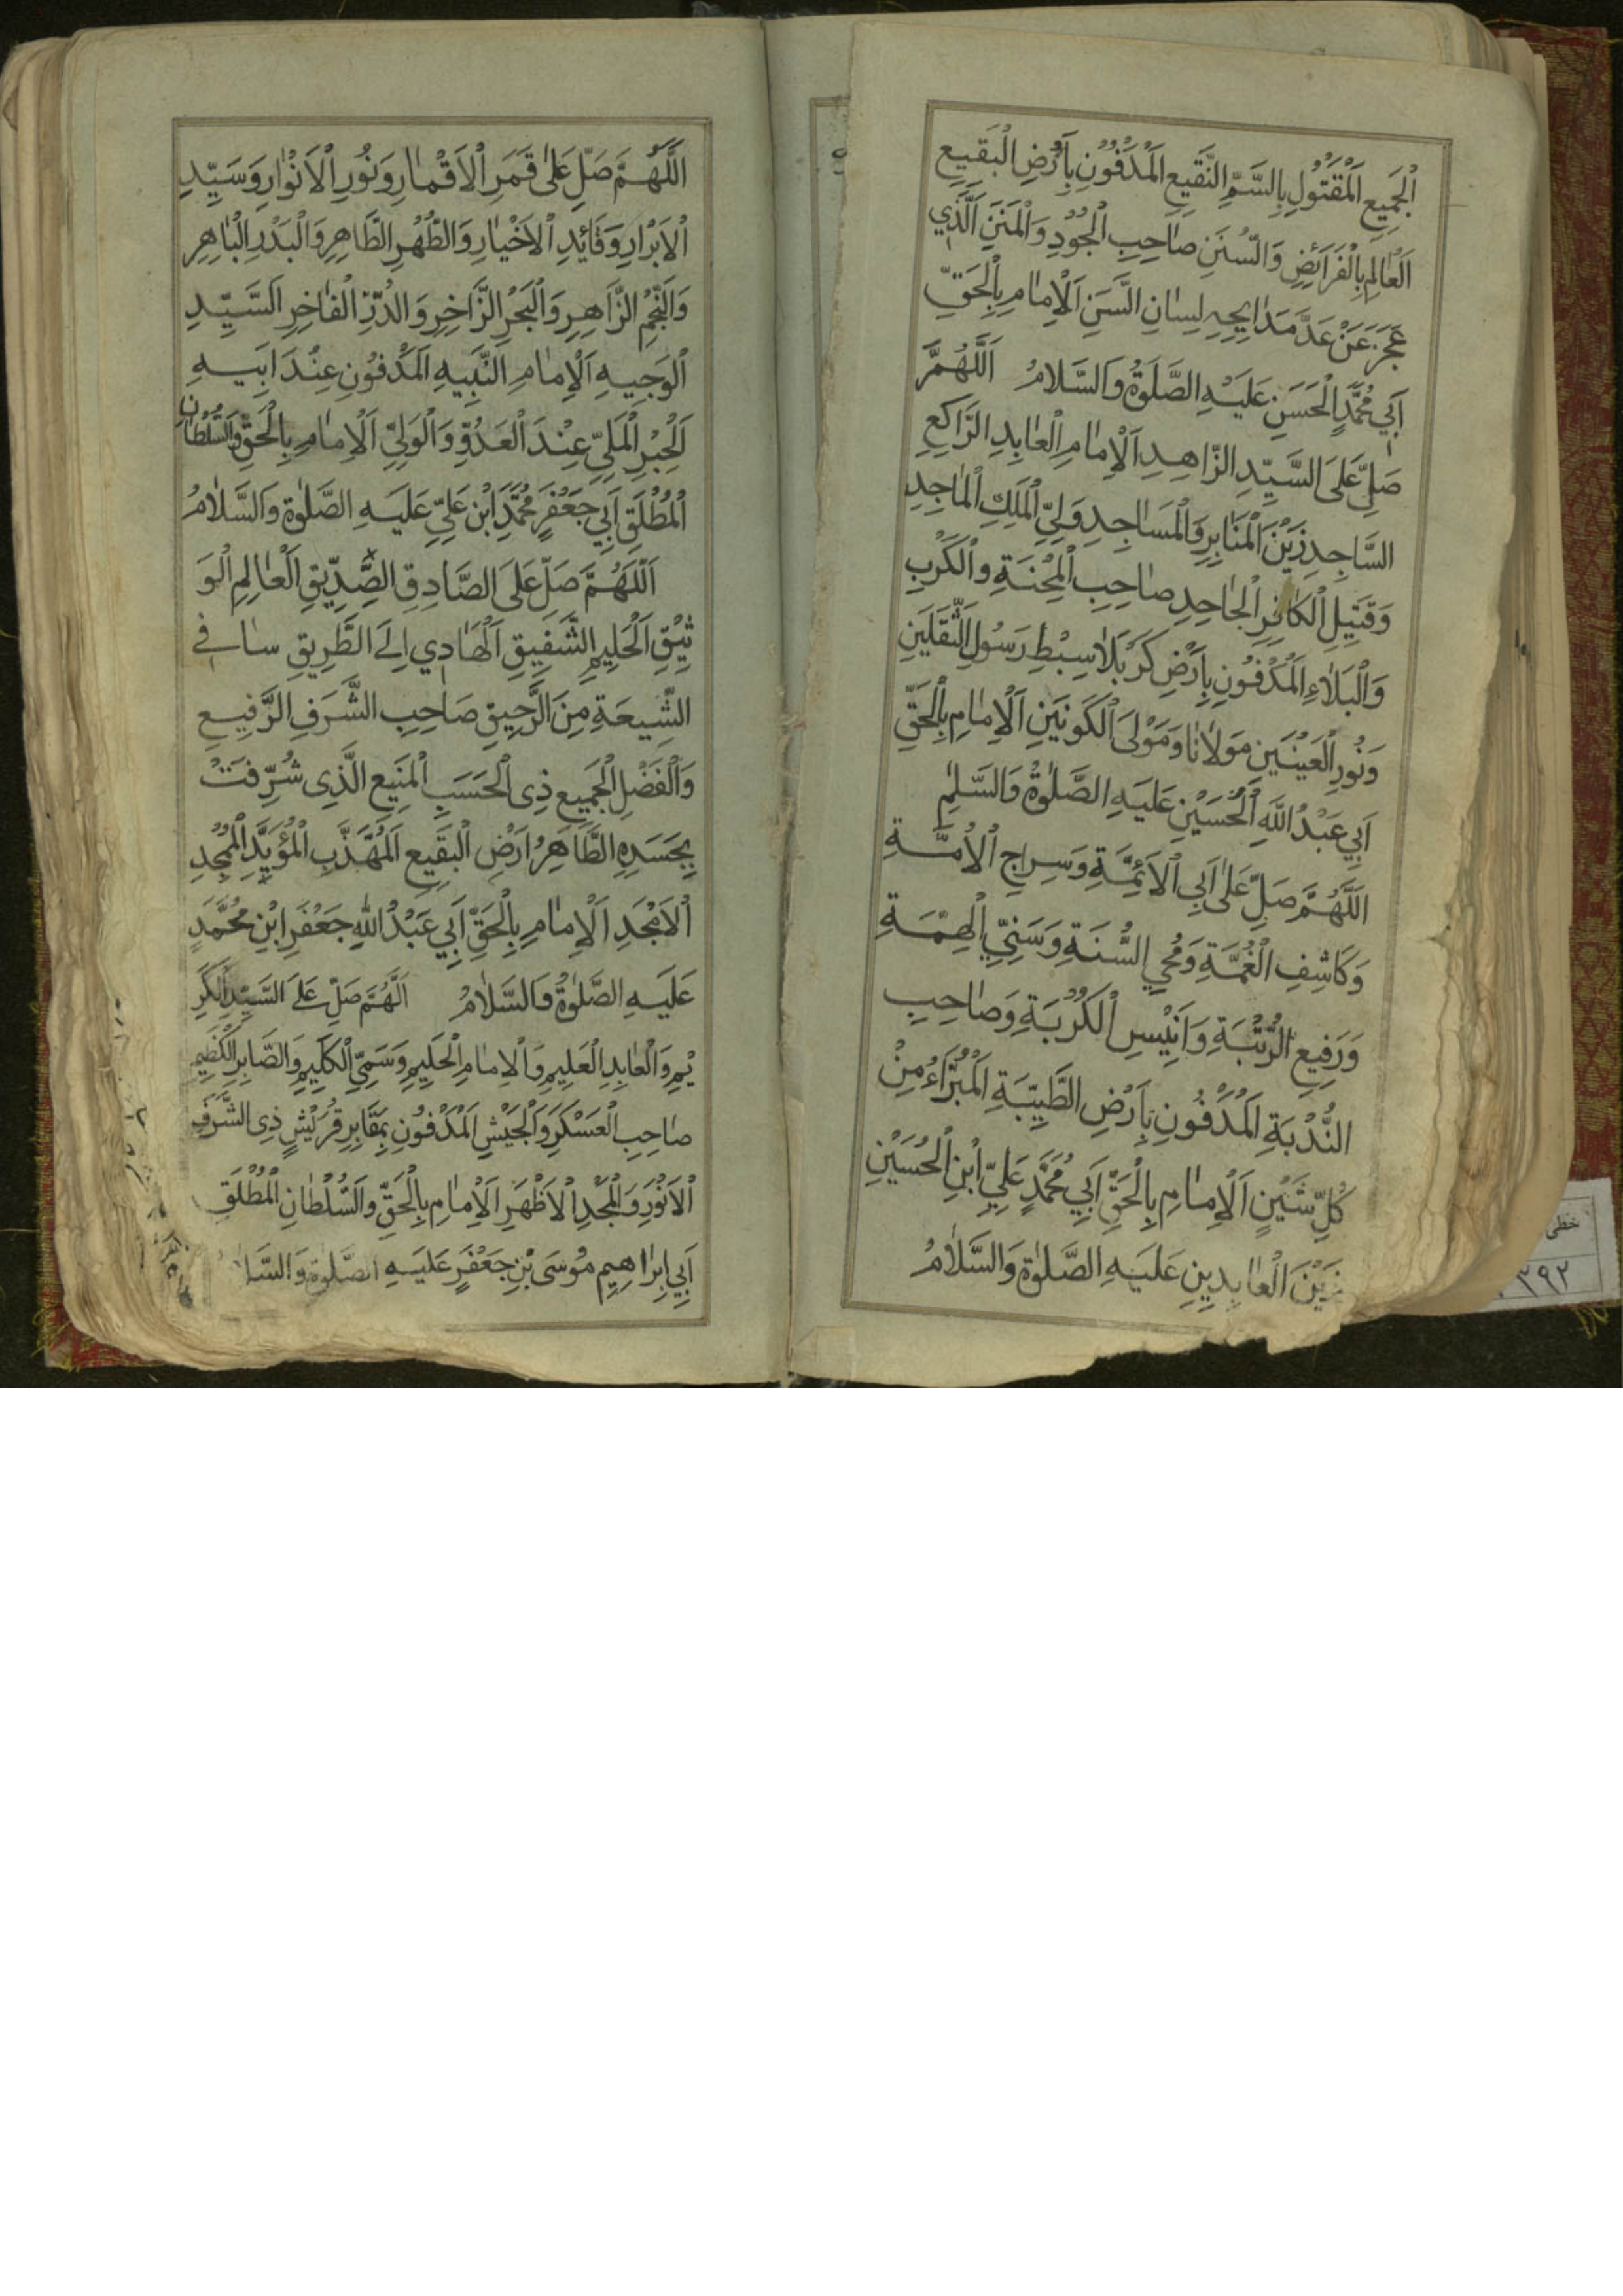 اَلْجَمِيعِ اَلْمَقْتُولِ بِالسَّمِّ النَّقِيعِ اَلْمَدْفُونِ بِاَرْضِ الْبَقِيعِ
اَلْعٰالِمِ بِالْفَرَائِضِ وَالسُّنَنِ صٰاحِبِ الْجُودِ وَالْمِنَنِ الَّذِي
عَجَزَ عَنْ عَدِّ مَدَايِحِهِ لِسٰانِ السَّنِ اَلْاِمٰامِ بِالْحَقِّ
اَبِي مُحَمَّدٍ الْحَسَنِ عَلَيْهِ الصَّلٰوةُ وَالسَّلامُ اَللّٰهُمَّ
صَلِّ عَلَى السَّيِّدِ الزّٰاهِدِ اَلْاِمٰامِ الْعٰابِدِ الرّٰاكِعِ
السّٰاجِدِ زَيْنَ الْمَنٰابِرِ وَالْمَسٰاجِدِ وَلِيِّ الْمَلِكِ الْمٰاجِدِ
وَقَتِيلِ الْكٰافِرِ الْجٰاحِدِ صٰاحِبِ الْمِحْنَةِ وَالْكَرْبِ
وَالْبَلٰاءِ اَلْمَدْفُونِ بِاَرْضِ كَرْبَلٰا سِبْطِ رَسُولِ الثَّقَلَيْنِ
وَنُورِ الْعَيْنَيْنِ مَوْلٰانٰا وَمَوْلَى الْكَوْنَيْنِ اَلْاِمٰامِ بِالْحَقِّ
اَبِي عَبْدُ اللّٰهِ الْحُسَيْنِ عَلَيْهِ الصَّلٰوةُ وَالسَّلٰم
اَللّٰهُمَّ صَلِّ عَلٰى اَبِي الْاَئِمَّةِ وَسِرٰاجِ الْاُمَّةِ
وَكَاشِفِ الْغُمَّةِ وَمُحْيِ السُّنَةِ وَسَنِيِّ الْهِمَّةِ
وَرَفِيعِ الرُّتْبَةِ وَاَنِيْسِ الْكُرْبَةِ وَصٰاحِبِ
النُّدْبَةِ اَلْمَدْفُونِ بِاَرْضِ الطَّيِّبَةِ اَلْمُبَرَّاءُ مِنْ
كُلِّ شَيْنٍ اَلْاِمٰامِ بِالْحَقِّ اَبِي مُحَمَّدٍ عَلِيِّ ابْنِ الْحُسَيْنِ
زَيْنَ الْعٰابِدِينِ عَلَيْهِ الصَّلٰوةُ وَالسَّلٰامُ
اَللّٰهُمَّ صَلِّ عَلٰى قَمَرِ الْاَقْمٰارِ وَنُورِ الْاَنْوٰارِ وَسَيِّدِ
الْاَبْرٰارِ وَقٰائِدِ الْاَخْيٰارِ وَالطُّهْرِ الطّٰاهِرِ وَالْبَدْرِ الْبٰاهِرِ
وَالنَّجْمِ الزّٰاهِرِ وَالْبَحْرِ الزّٰاخِرِ وَالدُّرِّ الْفٰاخِرِ اَلسَّيِّدِ
الْوَجِيهِ اَلْاِمٰامِ النَّبِيهِ اَلْمَدْفُونِ عِنْدَ اَبِيهِ
اَلْحِبْرِ الْمَلِيِّ عِنْدَ الْعَدُوِّ وَالْوَلِيِّ اَلْاِمٰامِ بِالْحَقِّ وَالسُّلْطٰانِ
الْمُطْلَقِ اَبِي جَعْفَرٍ مُحَمَّدِ ابْنِ عَلِيٍّ عَلَيْهِ الصَّلٰوةُ وَالسَّلٰامُ
اَللّٰهُمَّ صَلِّ عَلَى الصَّادِقِ الصِّدِّيقِ الْعٰالِمِ الْوَ
ثِيْقِ الْحَلِيمِ الشَّفِيقِ اَلْهَادِي اِلَى الطَّرِيقِ سٰاقِي
الشِّيعَةِ مِنَ الرَّحِيقِ صَاحِبِ الشَّرَفِ الرَّفِيعِ
وَالْفَضْلِ الْجَمِيعِ ذِى الْحَسَبِ الْمَنِيعِ الَّذِى شُرِّفَتْ
بِجَسَدِهِ الطَّاهِرُ اَرْضِ الْبَقِيعِ اَلْمُهَذَّبِ الْمُؤَيَّدِ الْمُمَجِّدِ
الْاَمْجَدِ اَلْاِمٰامِ بِالْحَقِّ اَبِي عَبْدُ اللّٰهِ جَعْفَرِ ابْنِ مُحَمَّدٍ
عَلَيْهِ الصَّلٰوةُ وَالسَّلٰامُ اَللّٰهُمَّ صَلِّ عَلَى السَّيِّدِ الْكَرِ
يْمِ وَالْعٰابِدِ الْعَلِيمِ وَالْاِمٰامِ الْحَلِيمِ وَسَمِيِّ الْكَلِيمِ وَالصَّابِرِ الْكَظِيمِ
صٰاحِبِ الْعَسْكَرِ وَالْجَيْشِ اَلْمَدْفُونِ بِمَقَابِرِ قُرَيْشٍ ذِى الشَّرَفِ
الْاَنْوَرِ وَالْمَجْدِ الْاَظْهَرِ اَلْاِمٰامِ بِالْحَقِّ وَالسُّلْطٰانِ الْمُطْلَقِ
اَبِي اِبْرٰاهِيمِ مُوسَى بْنِ جَعْفَرٍ عَلَيْهِ الصَّلٰوةُ وَالسَّلا
خطی